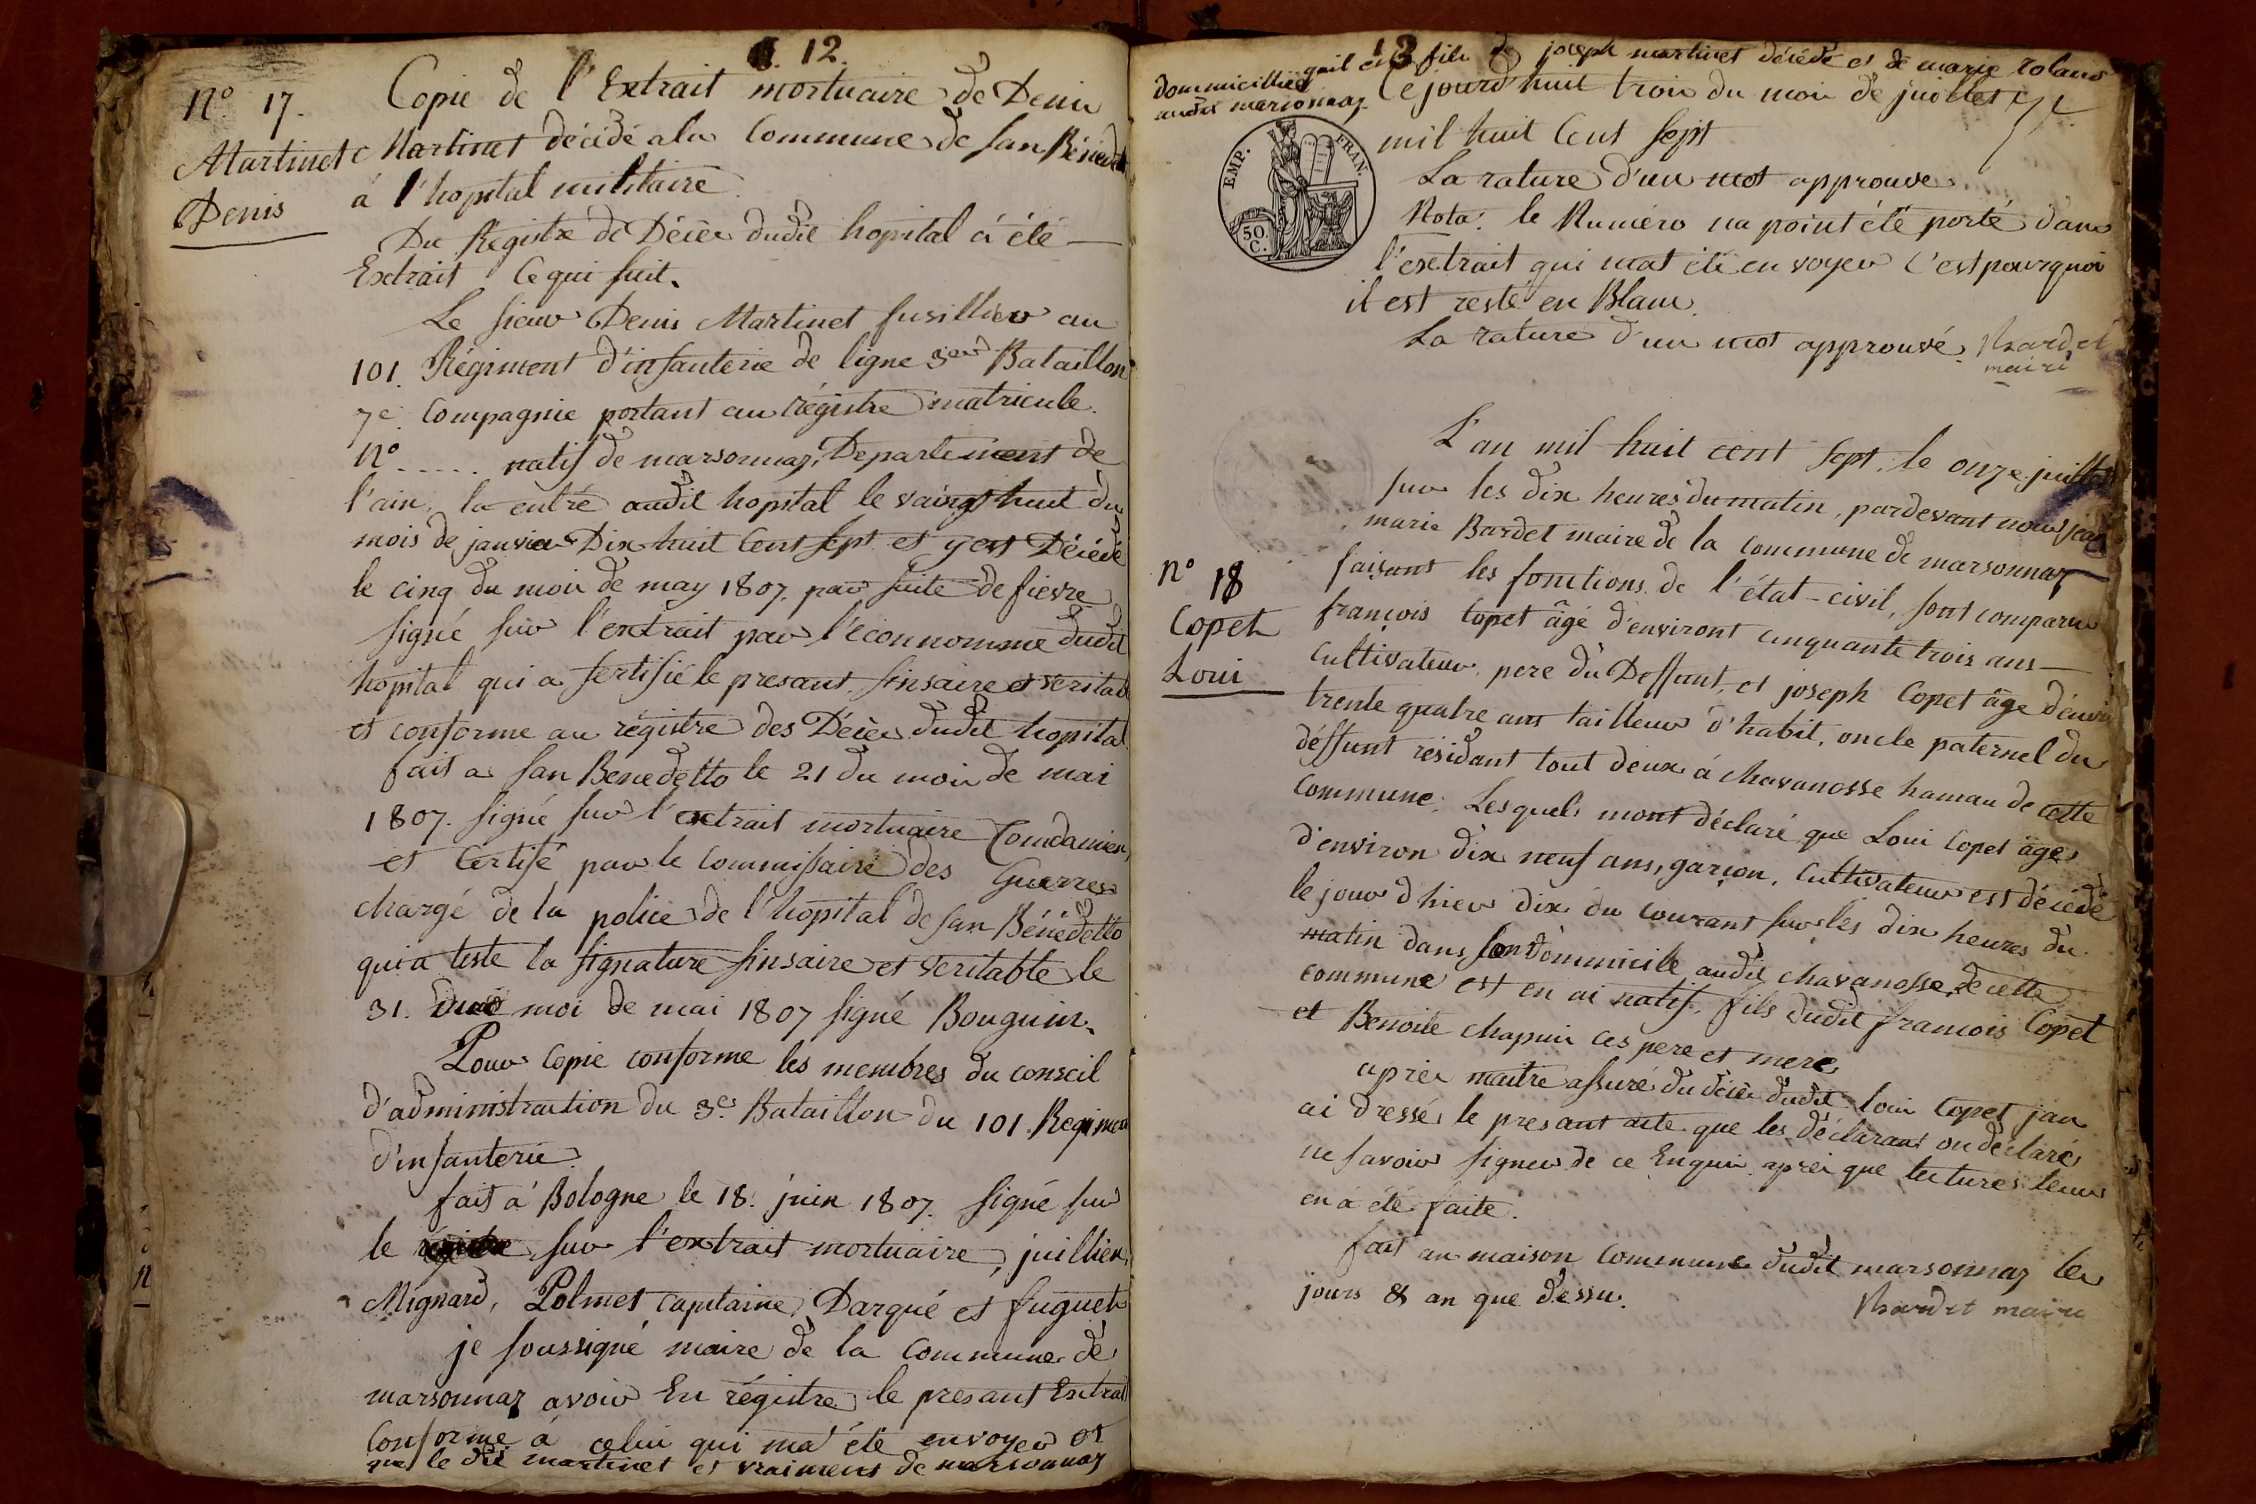 12.
N° 17.
Martinet
Denis
Copie de l'Extrait mortuaire de Denis
Martinet décédé a la Commune de San Bénédetto
á l'hopital militaire
Du Registre de Décès dudit hopital á été
Extrait Ce qui suit.
Le sieur Denis Martinet fusillier au
101. Régiment d'infanterie de ligne 3em Bataillon
7e. Compagnie portant au régistre matricule.
N° ..... natif de marsonnaz, Departement de
l'ain, la entré audit hopital le vaingt huit du
mois de janvier Dix huit Cent sept et y est Décédé
le cinq du moi de may 1807. par suite de fievre
signé sur l'extrait par l'éconnomme dudit
hopital qui a sertifié le presant sinsaire et veritabl
et conforme au régistre des Décès dudit hopital
fait a San Benedetto le 21 du moi de mai
1807. signé sur l'extrait mortuaire Comdamien,
et Certifé par le Commissaire des Guerres
chargé de la police de l'hopital de San Bénédetto
qui a testé la signature sinsaire et veritable le
31. du moi de mai 1807 signé Bouguin.
Pour Copie conforme les membres du conseil
d'administration du 3e. Bataillon du 101. Regimen
d'infanterie.
fait á Bologne le 18. juin 1807. signé sur
le régistre sur l'extrait mortuaire, juillien,
Mignard, Polmet capitaine, Darqué et fuguet
je soussigné maire de la Commune de
marsonnaz avoir En régistre le presant Extrait
Conforme á celui qui ma été envoyer et
que le dit martinet et vraiment de marsonnaz
13
quil est fils de joseph martinet décédé et de marie rolans
dommicilliés
audit marsonnaz
Ce jourd'huit trois du moi de juillet
mil huit Cent sept
EMP. FRAN.
50. C.
La rature d'un mot approuve
Nota. le Numéro na point été porté dans
l'extrait qui mat été envoyer C'est pourquoi
il est resté en Blanc.
La rature d'un mot approuvé Bardet
maire
L'an mil huit cent sept, le onze juillet
sur les dix heures du matin, pardevant nous jean
marie Bardet maire de la commune de marsonnaz
faisant les fonctions de l'état-civil, sont comparu
N° 18
Copet
Loui
françois Copet âgé d'environt cinquante trois ans
Cultivateur, pere du Deffunt, et joseph Copet âge d'envir
trente quatre ans tailleur d'habit, oncle paternel du
déffunt résidant tout deux á chavanosse hamau de cette
Commune. Lesquels mont déclaré que Loui Copet âgé
d'environ dix neuf ans, garçon, Cultivateur est décédé
le jour d hier dix du courant sur les dix heures du
matin dans son dommicile audit chavanosse, de cette
commune est en ai natif, fils dudit francois Copet
et Benoite chapuis ces pere et mere
après maitre assuré du décès dudit loui Copet jan
ai dressé le presant acte que les déclarans on déclaré
ne savoir signer de ce Enquis après que lecture leur
en á été faite.
fait an maison Commune dudit marsonnaz les
jours & an que dessu.
Bardet maire